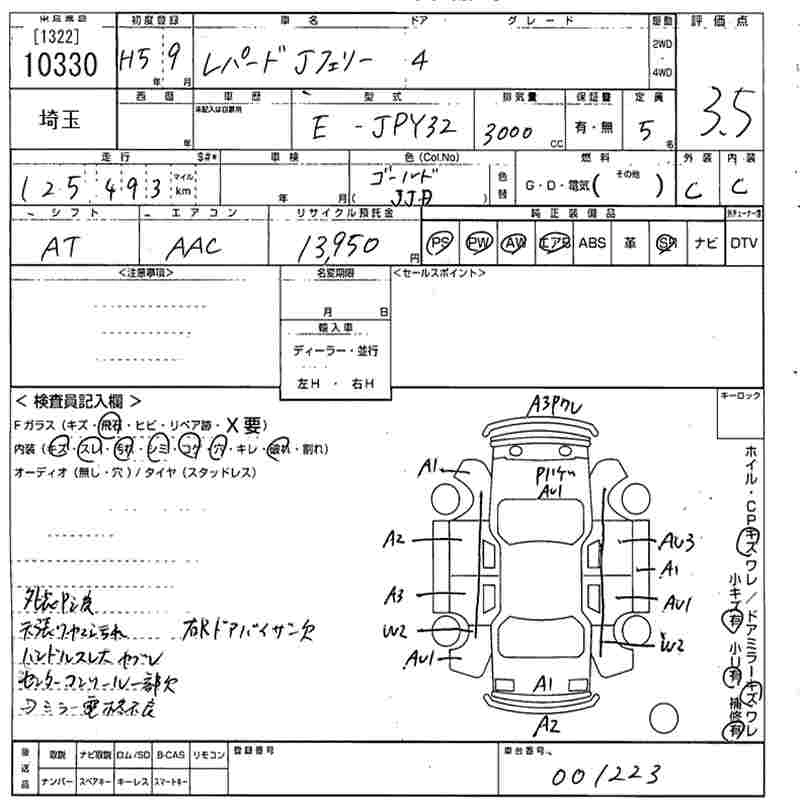 [1322]
10330
初度登録
車名
ドア
グレード
駆動
評価点
H5 9
年 月
レパード Jフェリー
4
2WD
4WD
3.5
埼玉
西暦
年
車歴
未記入は自家用
型式
E - JPY32
排気量
3000
CC
保証書
有・無
定員
5
名
走行
$#*
125,493
マイル
km
車検
年 月
色(Col.No)
ゴールド
色替
燃料
G・D・電気( その他 )
外装
C
内装
C
シフト
AT
エアコン
AAC
リサイクル預託金
13,950
円
純正装備品
PS PW AW エアB ABS 革 SR ナビ DTV
<注意事項>
名変期限
月 日
輸入車
ディーラー・並行
左H ・ 右H
<セールスポイント>
<検査員記入欄>
Fガラス(キズ・飛石・ヒビ・リペア跡・X要)
内装(キズ・スレ・汚れ・シミ・コゲ・穴・キレ・破れ・割れ)
オーディオ(無し・穴)/タイヤ(スタッドレス)
右Rドアバイザー欠
ハンドルスレ大
センターコンソール一部欠
キーロック
A3
AU1
A1
A2
A3
W2
AU1
AU3
A1
AU1
W2
A1
A2
ホイル・CPキズワレ/ドアミラーキズワレ
小キズ有 小U有 補修有
後送品
取説 ナビ取説 ロム/SD B-CAS リモコン
ナンバー スペアキー キーレス スマートキー
登録番号
車台番号
001223